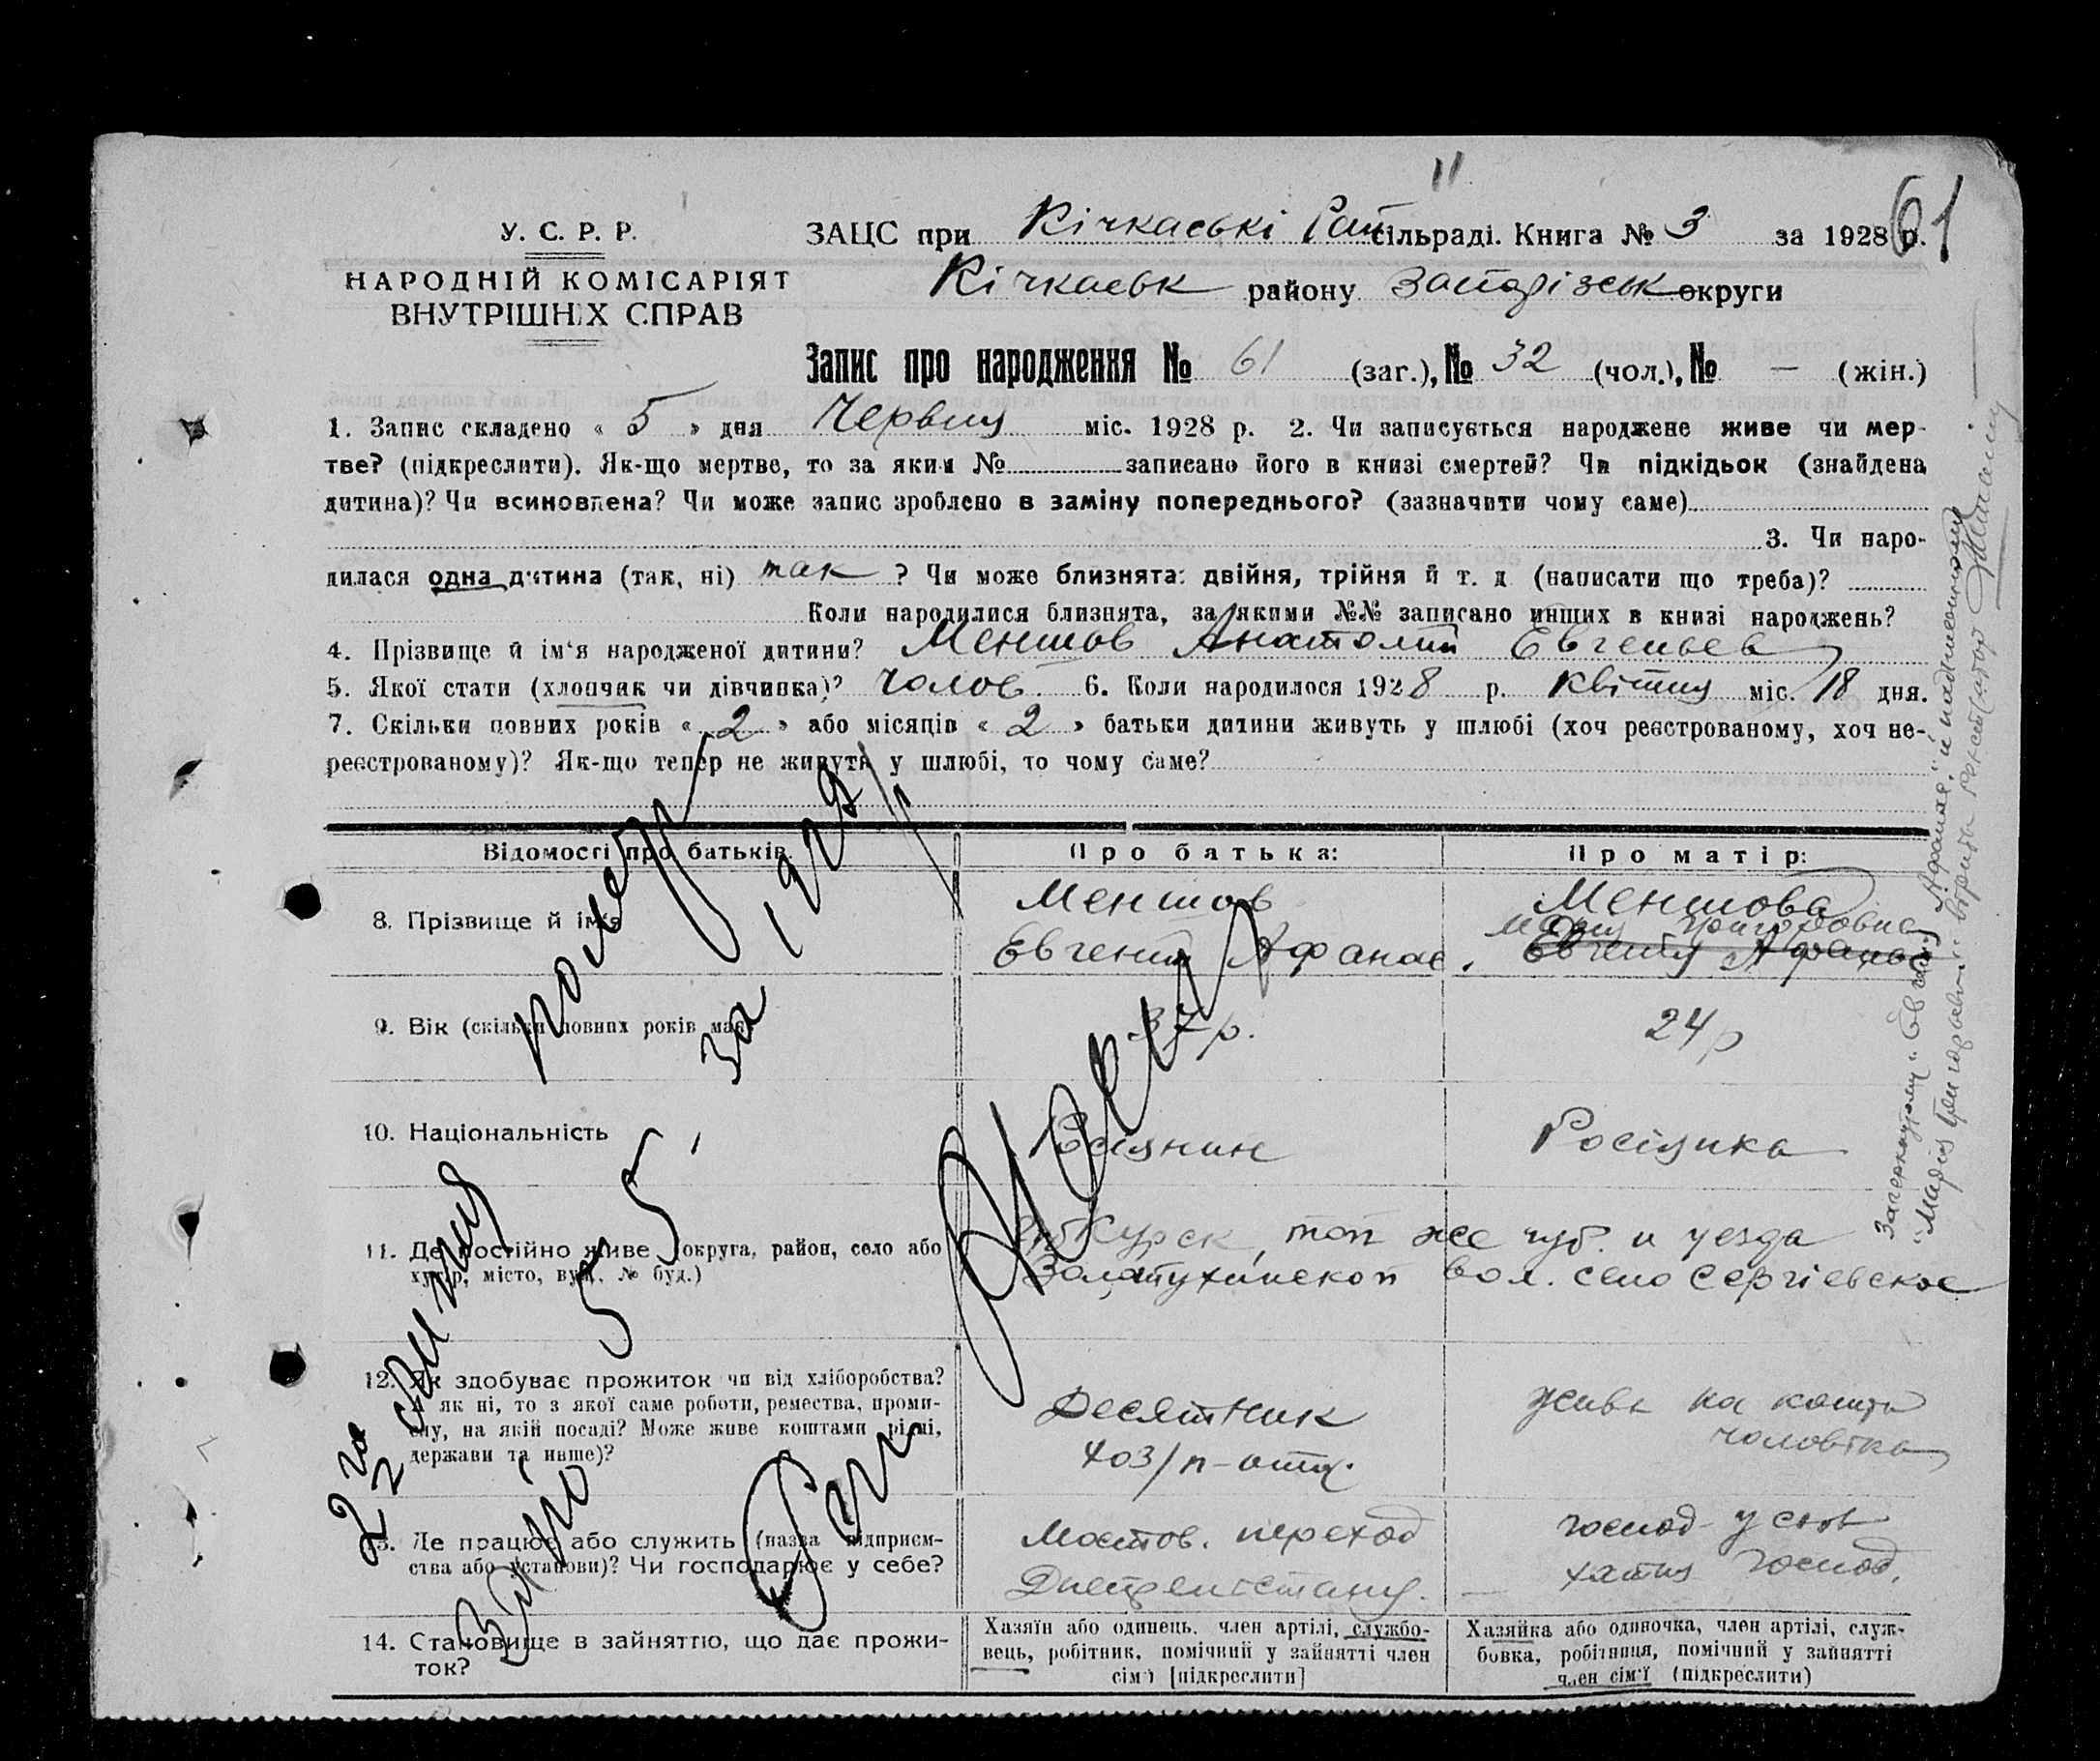 11
61
У. С. Р. Р.
НАРОДНІЙ КОМІСАРІЯТ
ВНУТРІШНІХ СПРАВ
ЗАЦС при Кічкаські сільраді. Книга № 3 за 1928 р.
Кічкаськ району Запорізськ округи
Запис про народження № 61 (заг.), № 32 (чол.), № — (жін.)
1. Запис складено « 5 » дня Червня міс. 1928 р. 2. Чи записується народжене живе чи мер-
тве? (підкреслити). Як-що мертве, то за яким № записано його в книзі смертей? Чи підкідьок (знайдена
дитина)? Чи всиновлена? Чи може запис зроблено в заміну попереднього? (зазначити чому саме)
3. Чи наро-
дилася одна дитина (так, ні) так ? Чи може близнята: двійня, трійня й т. д (написати що треба)?
Коли народилися близнята, за якими №№ записано инших в книзі народжень?
4. Прізвище й ім'я народженої дитини? Меншов Анатолий Евгеньев
5. Якої стати (хлопчик чи дівчинка)? чолов. 6. Коли народилося 1928 р. квітня міс. 18 дня.
7. Скільки повних років « 2 » або місяців « 2 » батьки дитини живуть у шлюбі (хоч реєстрованому, хоч не-
реєстрованому)? Як-що тепер не живуть у шлюбі, то чому саме?
Відомості про батьків. Про батька: Про матір:
8. Прізвище й ім'я Меншов Меншова
Мария Григоровна
Евгений Афанас. Евгения Афанас
9. Вік (скільки повних років має) 37 р. 24 р
10. Національність Росіянин Росіянка
11. Де постійно живе (округа, район, село або
хутір, місто, вул. № буд.)
Курск, той же губ. и уезда
Золотухинской вол. село Сергіевское
12. Як здобуває прожиток чи від хліборобства?
А як ні, то з якої саме роботи, ремества, проми-
слу, на якій посаді? Може живе коштами рідні,
держави та инше)?
Десятник
живе на кошти
чоловіка
13. Де працює або служить (назва підприєм-
ства або установи)? Чи господарює у себе?
Мостов. переход
господ.
хатня господ.
14. Становище в зайняттю, що дає прожи-
ток?
Хазяїн або одинець, член артілі, службо-
вець, робітник, помічний у зайнятті член
сім'ї [підкреслити]
Хазяйка або одиночка, член артілі, служ-
бовка, робітниця, помічний у зайнятті
член сім'ї (підкреслити)
за 1928 р